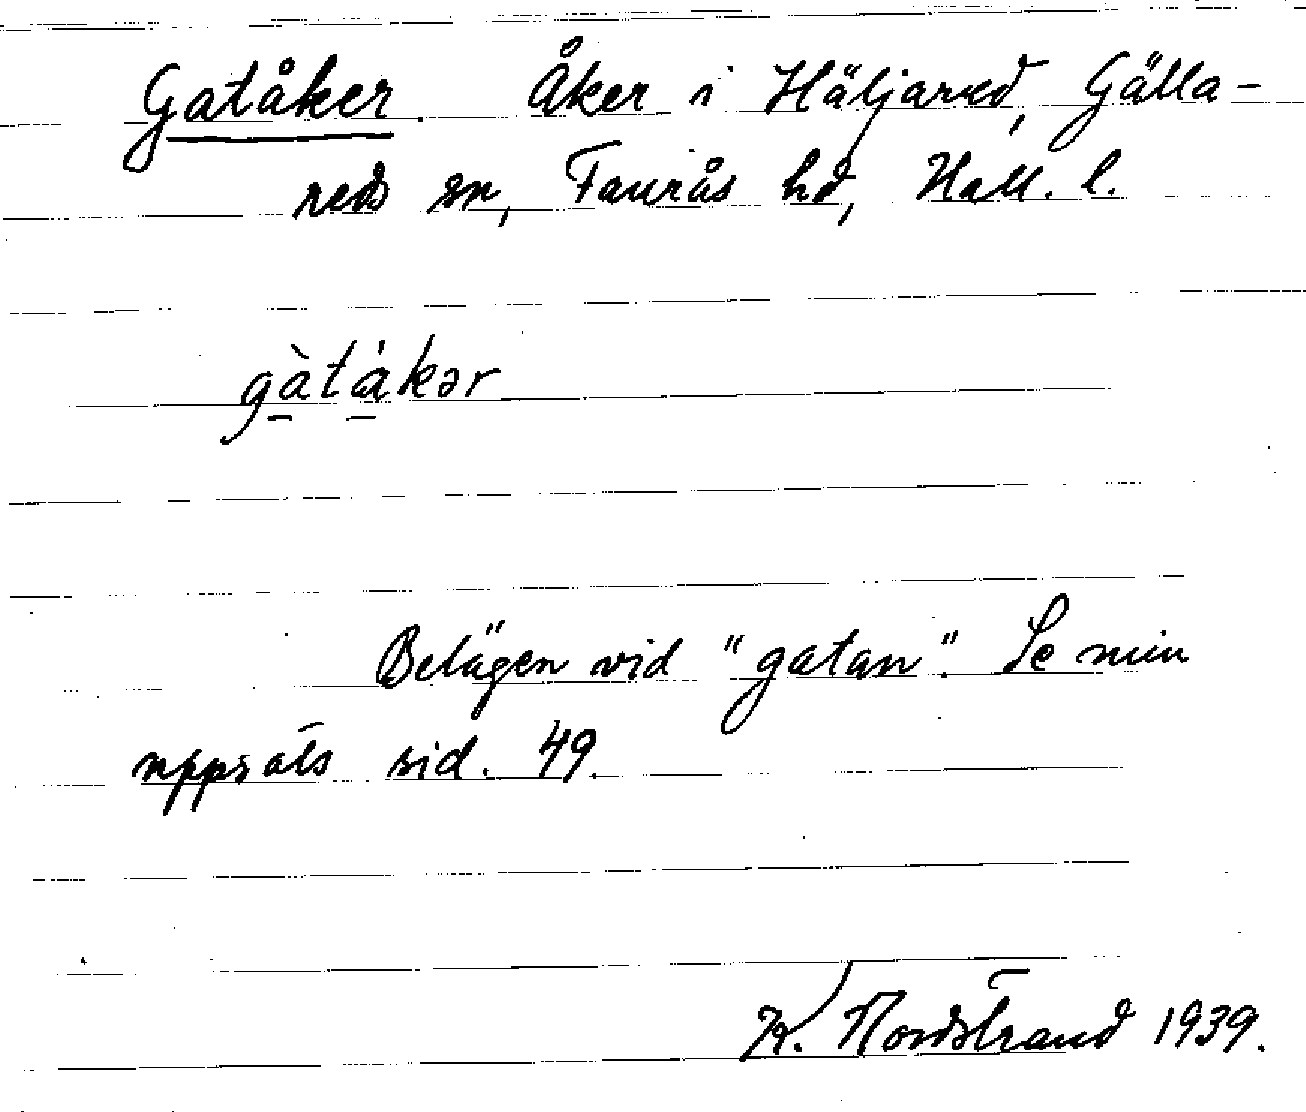 Gatåker. Åker i Häljared, Gälla-
reds sn, Faurås hd, Hall. l.
gàtákər
Belägen vid "gatan". Se min
uppsats sid. 49.
K. Nordstrand 1939.